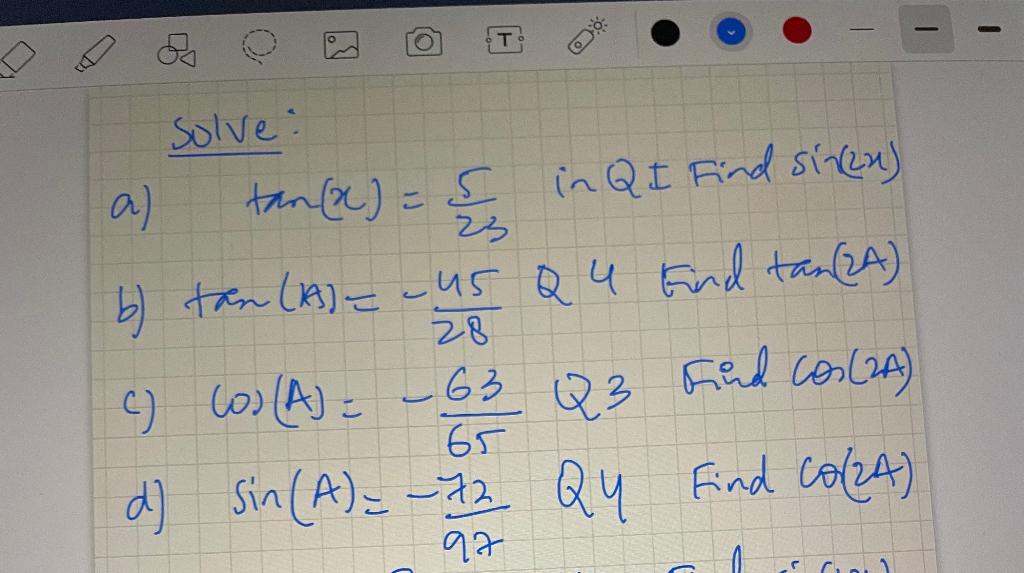 T
Solve:
a) tan(x) = 5/23 in QI Find sin(2x)
b) tan(A) = -45/28 Q4 Find tan(2A)
c) cos(A) = -63/65 Q3 Find cos(2A)
d) sin(A) = -72/97 Q4 Find Co(2A)